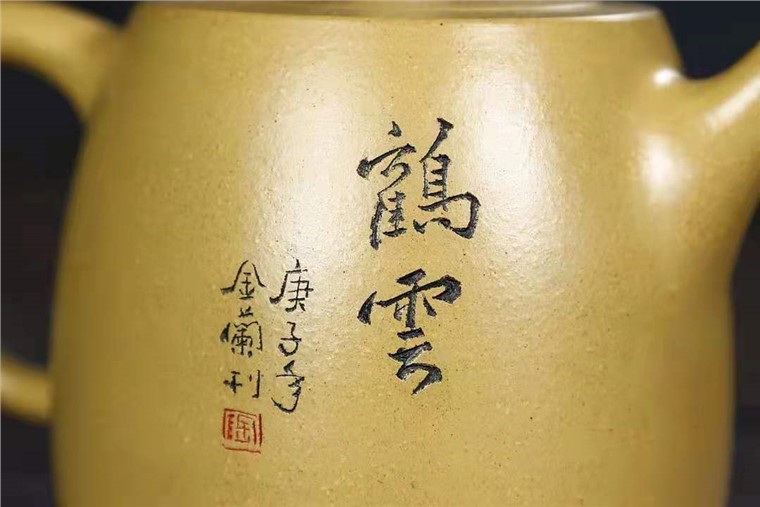 鶴雲
庚子年
金蘭利